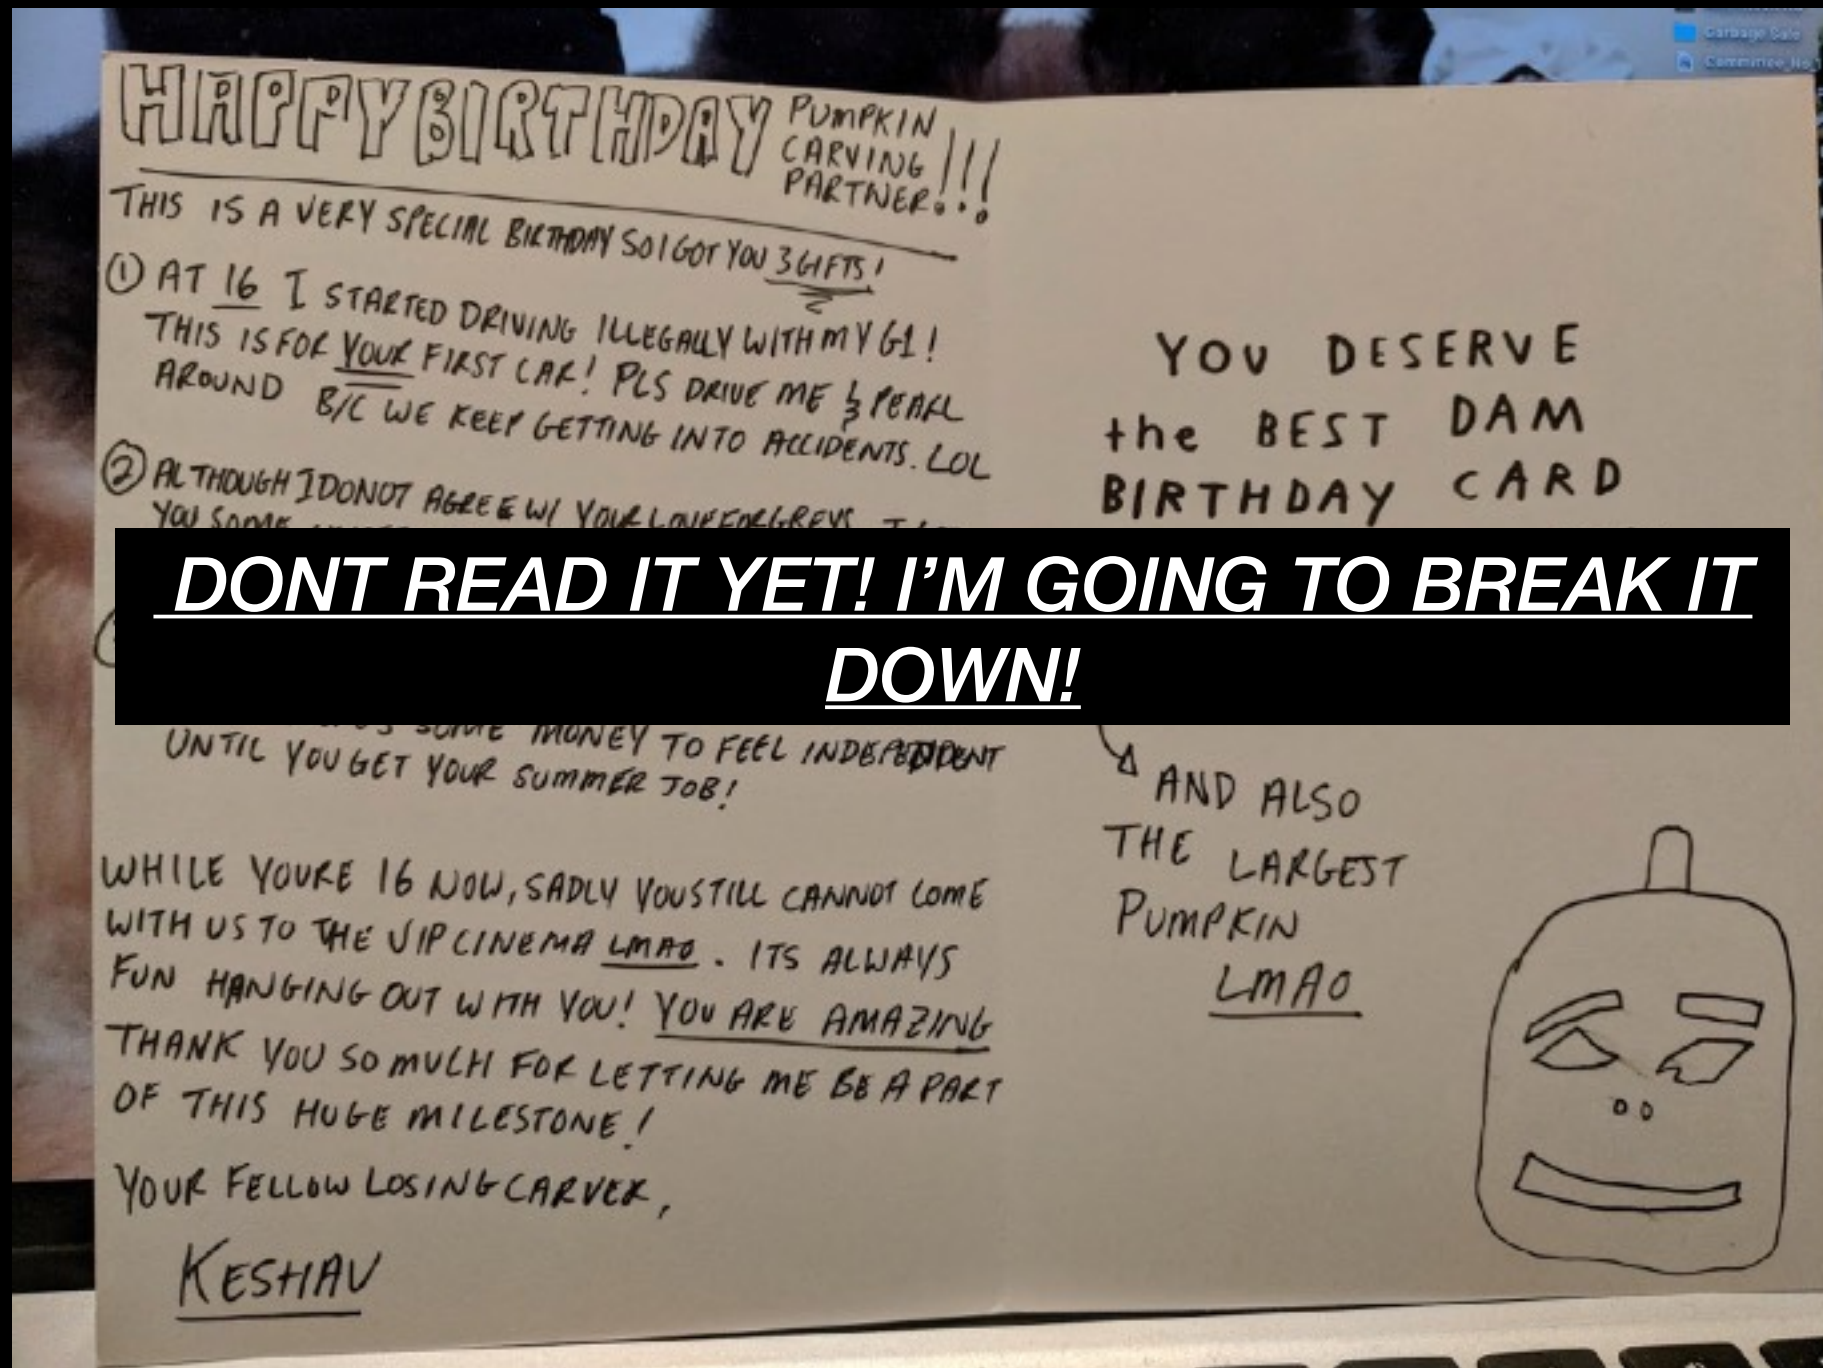 HAPPY BIRTHDAY PUMPKIN
CARVING
PARTNER!!!
THIS IS A VERY SPECIAL BIRTHDAY SO I GOT YOU 3 GIFTS!
① AT 16 I STARTED DRIVING ILLEGALLY WITH MY G1!
THIS IS FOR YOUR FIRST CAR! PLS DRIVE ME & PEARL
AROUND B/C WE KEEP GETTING INTO ACCIDENTS. LOL
② ALTHOUGH I DO NOT AGREE W/ YOUR LOVE FOR GREYS
YOU SOME
DONT READ IT YET! I’M GOING TO BREAK IT
DOWN!
SOME MONEY TO FEEL INDEPENDENT
UNTIL YOU GET YOUR SUMMER JOB!
WHILE YOURE 16 NOW, SADLY YOU STILL CANNOT COME
WITH US TO THE VIP CINEMA LMAO. ITS ALWAYS
FUN HANGING OUT WITH YOU! YOU ARE AMAZING
THANK YOU SO MUCH FOR LETTING ME BE A PART
OF THIS HUGE MILESTONE!
YOUR FELLOW LOSING CARVER,
KESHAV
YOU DESERVE
the BEST DAM
BIRTHDAY CARD
AND ALSO
THE LARGEST
PUMPKIN
LMAO
Garbage Sale